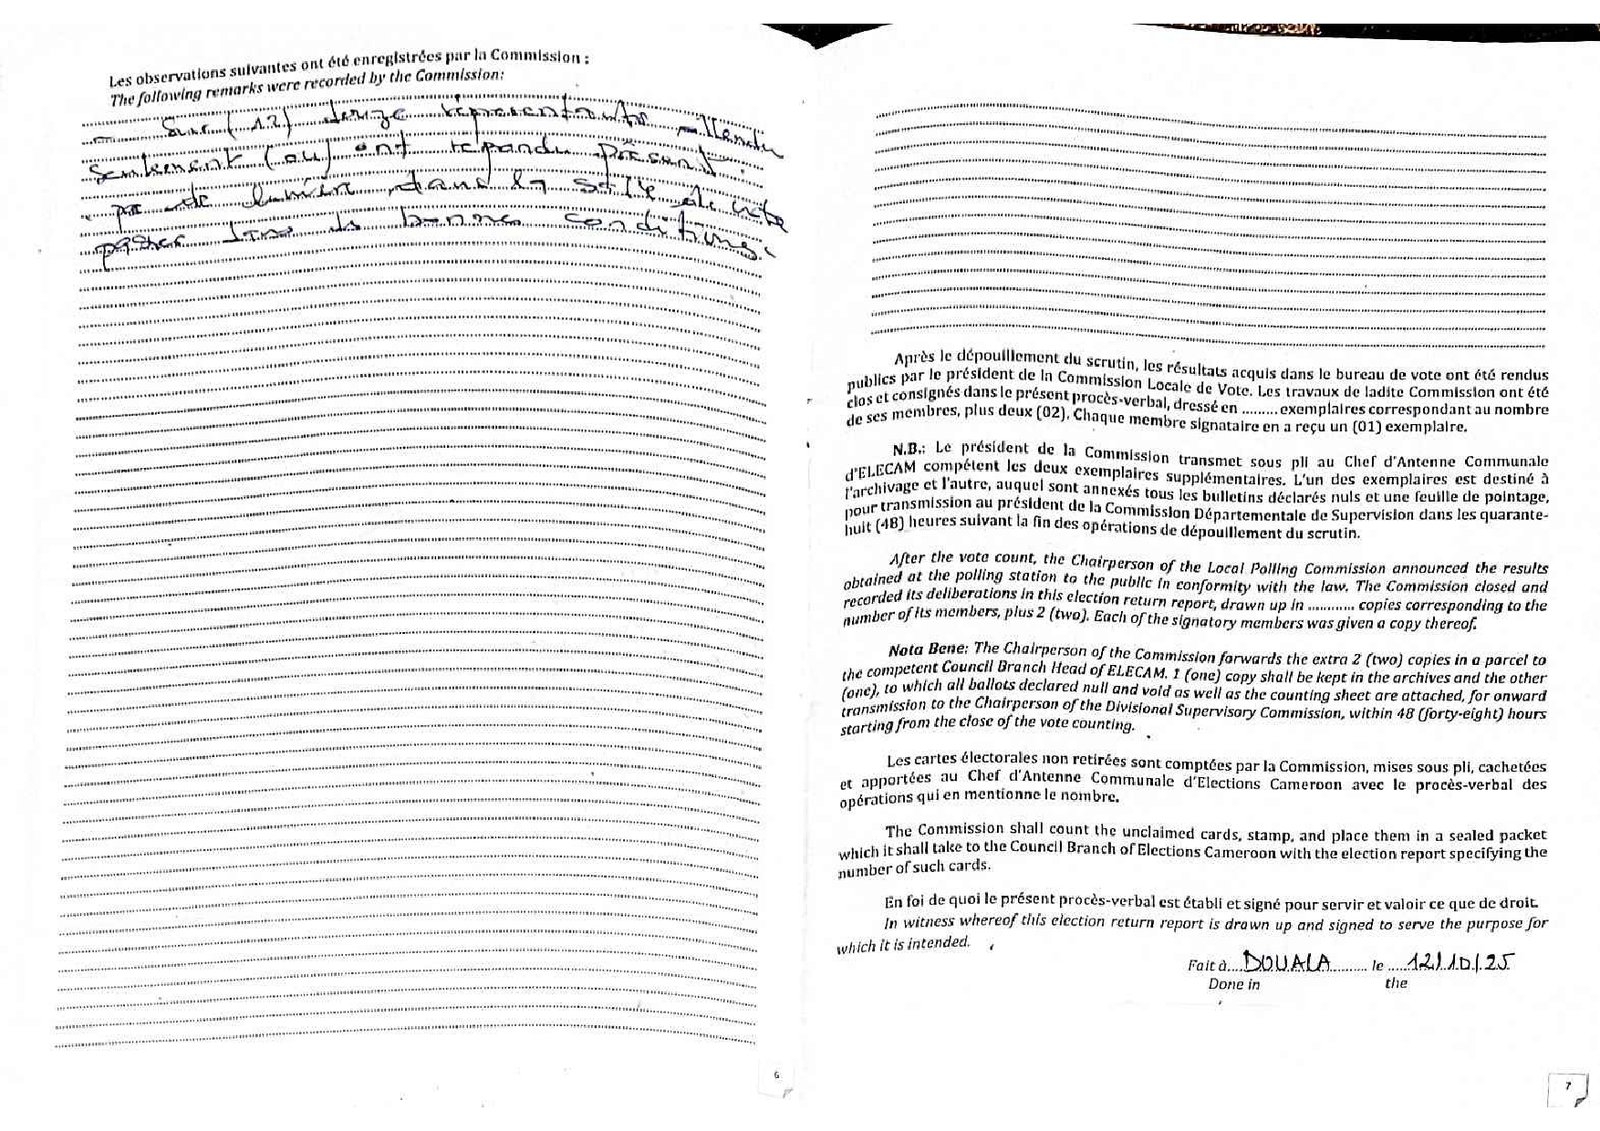 Les observations suivantes ont été enregistrées par la Commission :
The following remarks were recorded by the Commission:
- Sur (12) douze représentants attendu
seulement (04) ont répondu présent.
pas de lumière dans la salle
passer dans de bonnes conditions.
6
Après le dépouillement du scrutin, les résultats acquis dans le bureau de vote ont été rendus
publics par le président de la Commission Locale de Vote. Les travaux de ladite Commission ont été
clos et consignés dans le présent procès-verbal, dressé en ......... exemplaires correspondant au nombre
de ses membres, plus deux (02). Chaque membre signataire en a reçu un (01) exemplaire.
N.B.: Le président de la Commission transmet sous pli au Chef d'Antenne Communale
d'ELECAM compétent les deux exemplaires supplémentaires. L'un des exemplaires est destiné à
l'archivage et l'autre, auquel sont annexés tous les bulletins déclarés nuls et une feuille de pointage,
pour transmission au président de la Commission Départementale de Supervision dans les quarante-
huit (48) heures suivant la fin des opérations de dépouillement du scrutin.
After the vote count, the Chairperson of the Local Polling Commission announced the results
obtained at the polling station to the public in conformity with the law. The Commission closed and
recorded its deliberations in this election return report, drawn up in ............ copies corresponding to the
number of its members, plus 2 (two). Each of the signatory members was given a copy thereof.
Nota Bene: The Chairperson of the Commission forwards the extra 2 (two) copies in a parcel to
the competent Council Branch Head of ELECAM. 1 (one) copy shall be kept in the archives and the other
(one), to which all ballots declared null and void as well as the counting sheet are attached, for onward
transmission to the Chairperson of the Divisional Supervisory Commission, within 48 (forty-eight) hours
starting from the close of the vote counting.
Les cartes électorales non retirées sont comptées par la Commission, mises sous pli, cachetées
et apportées au Chef d'Antenne Communale d'Elections Cameroon avec le procès-verbal des
opérations qui en mentionne le nombre.
The Commission shall count the unclaimed cards, stamp, and place them in a sealed packet
which it shall take to the Council Branch of Elections Cameroon with the election report specifying the
number of such cards.
En foi de quoi le présent procès-verbal est établi et signé pour servir et valoir ce que de droit.
In witness whereof this election return report is drawn up and signed to serve the purpose for
which it is intended.
Fait à....DOUALA......... le .....12/10/25
Done in the
7